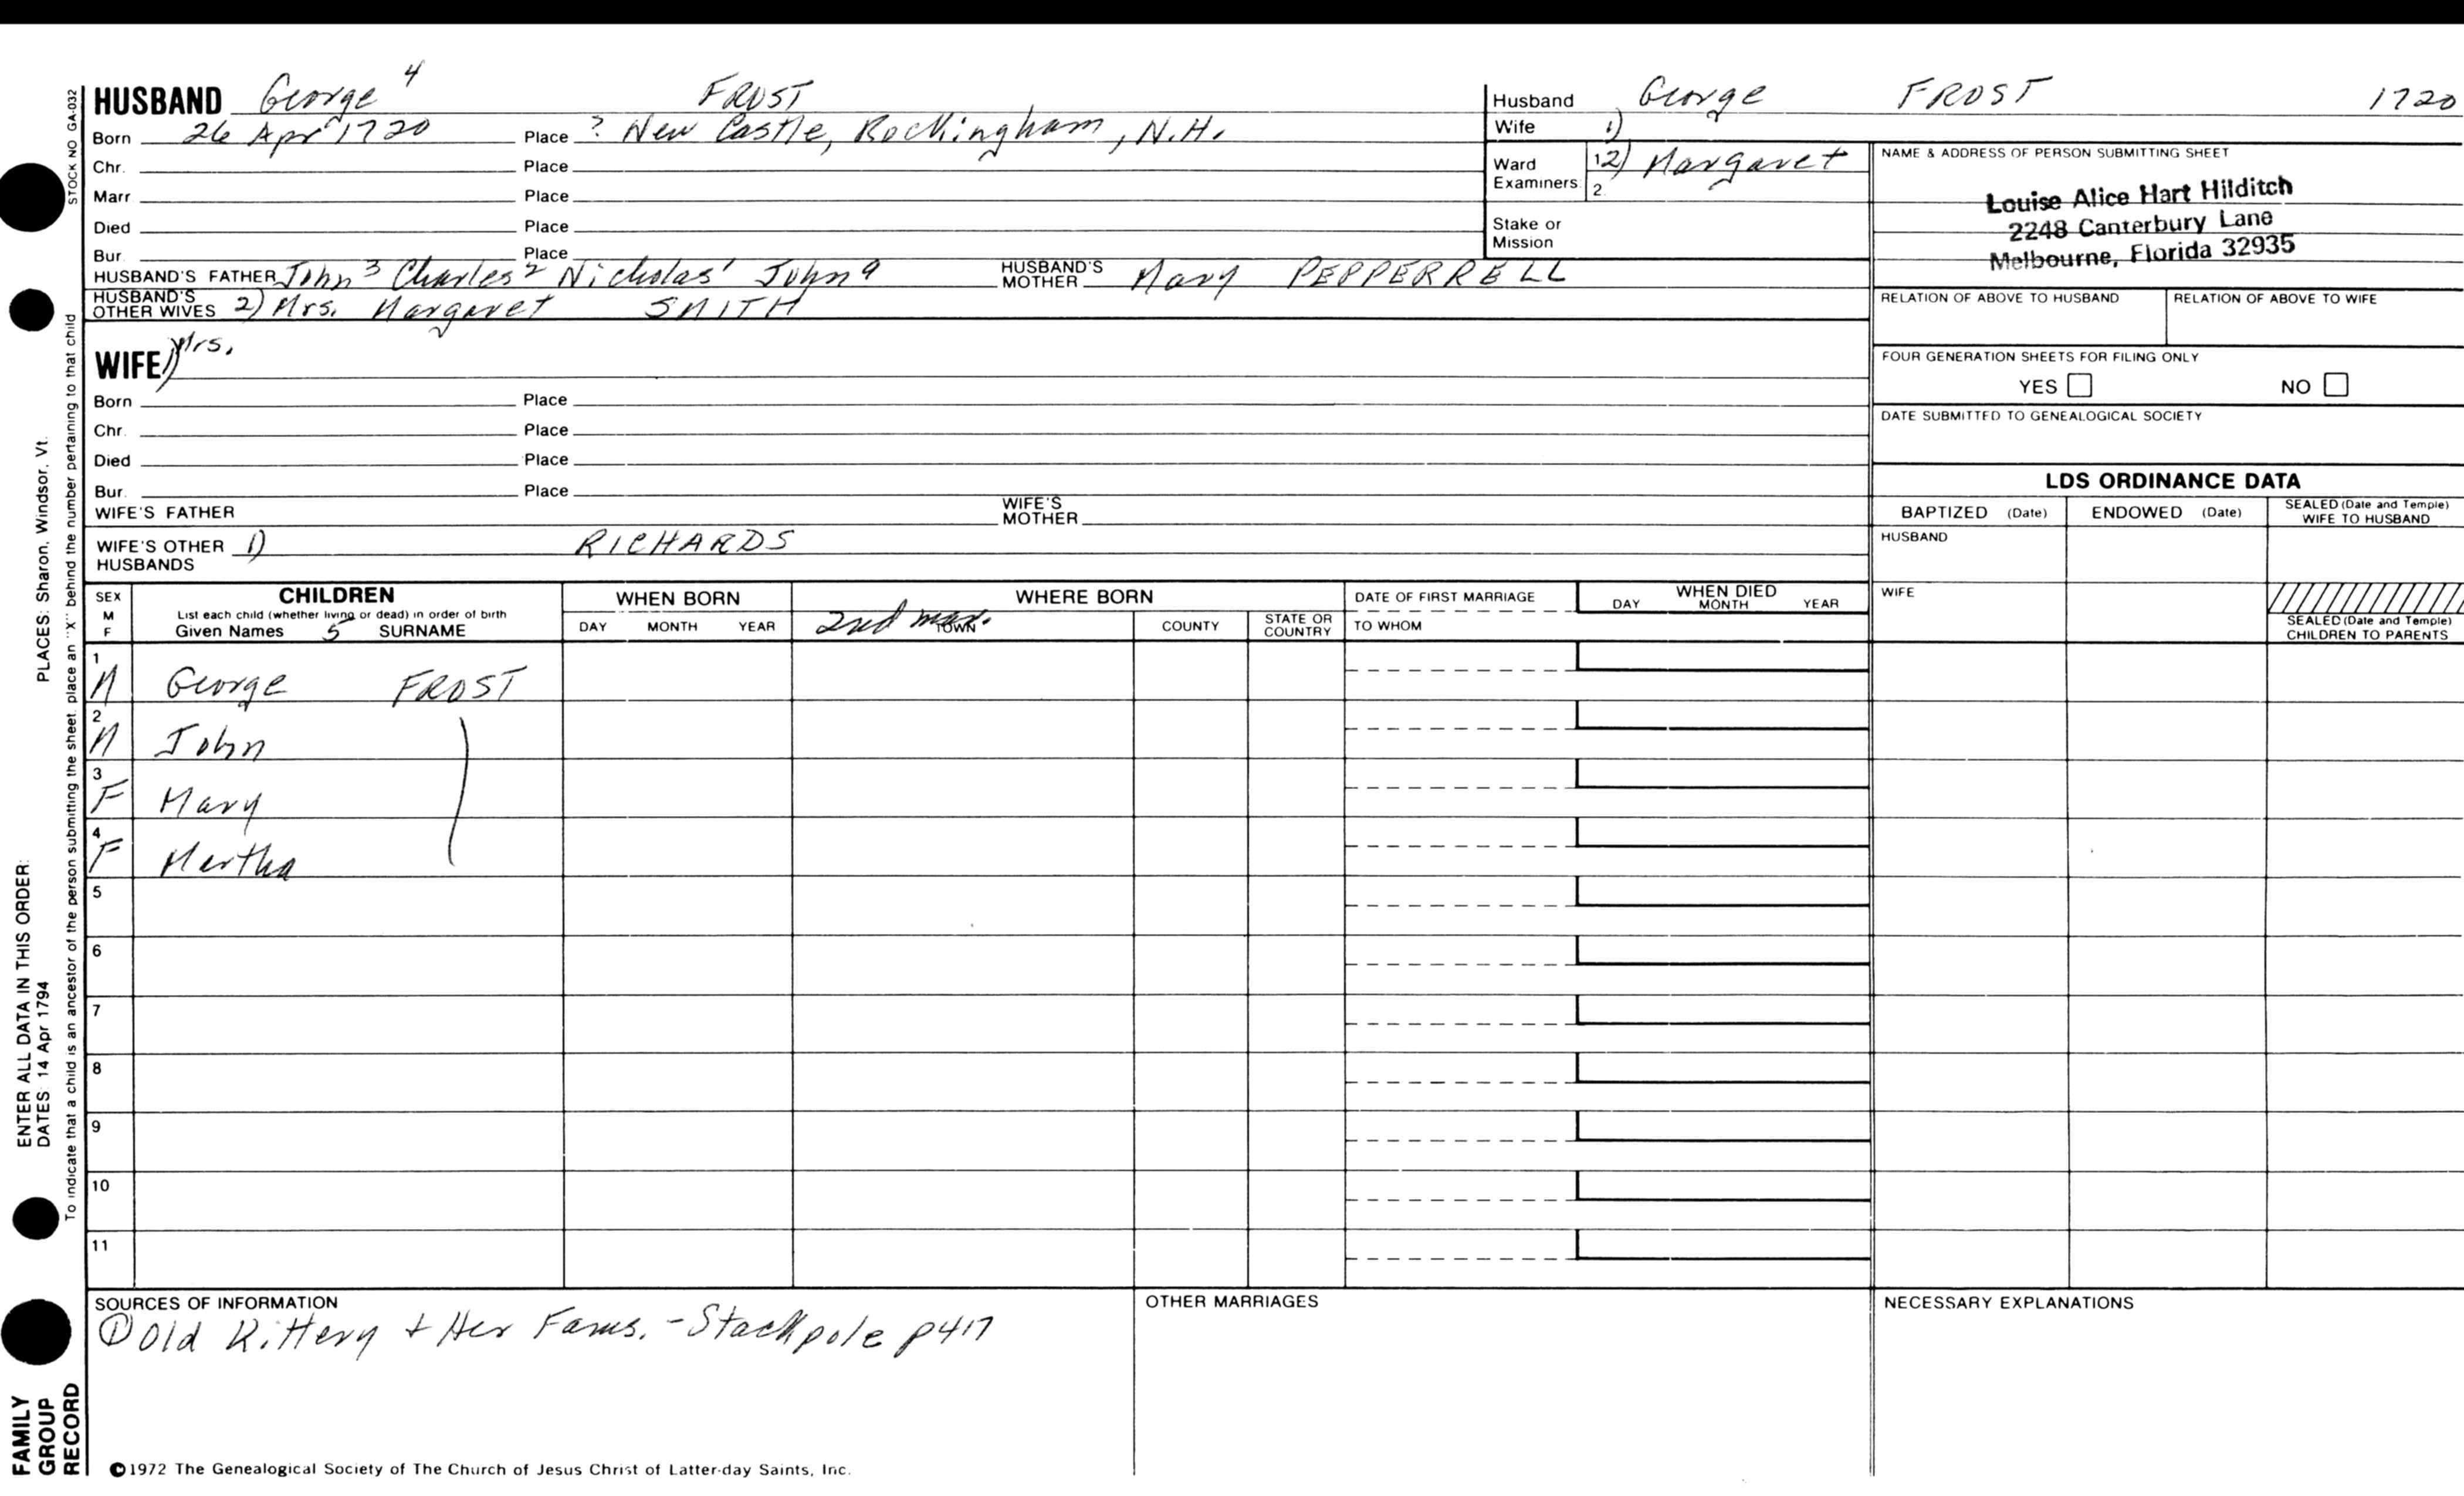 HUSBAND George 4 FROST
Born 26 Apr 1720 Place ? New Castle, Rockingham, N.H.
Chr. Place
Marr Place
Died Place
Bur. Place
HUSBAND'S FATHER John 3 Charles 2 Nicholas 1 John a HUSBAND'S MOTHER Mary PEPPERRELL
HUSBAND'S OTHER WIVES 2) Mrs. Margaret SMITH
WIFE 1) Mrs.
Born Place
Chr. Place
Died Place
Bur. Place
WIFE'S FATHER WIFE'S MOTHER
WIFE'S OTHER HUSBANDS 1) RICHARDS
Husband George FROST 1720
Wife 1)
Ward Examiners 1. 2) Margaret
2.
Stake or Mission
NAME & ADDRESS OF PERSON SUBMITTING SHEET
Louise Alice Hart Hilditch
2248 Canterbury Lane
Melbourne, Florida 32935
RELATION OF ABOVE TO HUSBAND RELATION OF ABOVE TO WIFE
FOUR GENERATION SHEETS FOR FILING ONLY
YES NO
DATE SUBMITTED TO GENEALOGICAL SOCIETY
LDS ORDINANCE DATA
BAPTIZED (Date) ENDOWED (Date) SEALED (Date and Temple) WIFE TO HUSBAND
HUSBAND
WIFE
SEALED (Date and Temple) CHILDREN TO PARENTS
SEX M F
CHILDREN
List each child (whether living or dead) in order of birth
Given Names 5 SURNAME
WHEN BORN
DAY MONTH YEAR
WHERE BORN
2nd mar. TOWN COUNTY STATE OR COUNTRY
DATE OF FIRST MARRIAGE
TO WHOM
WHEN DIED
DAY MONTH YEAR
1 M George FROST
2 M John
3 F Mary
4 F Martha
5
6
7
8
9
10
11
SOURCES OF INFORMATION
① Old Kittery + Her Fams. - Stackpole p417
OTHER MARRIAGES
NECESSARY EXPLANATIONS
©1972 The Genealogical Society of The Church of Jesus Christ of Latter-day Saints, Inc.
STOCK NO GA-032
To indicate that a child is an ancestor of the person submitting the sheet, place an "X" behind the number pertaining to that child
ENTER ALL DATA IN THIS ORDER:
DATES: 14 Apr 1794
PLACES: Sharon, Windsor, Vt.
FAMILY
GROUP
RECORD